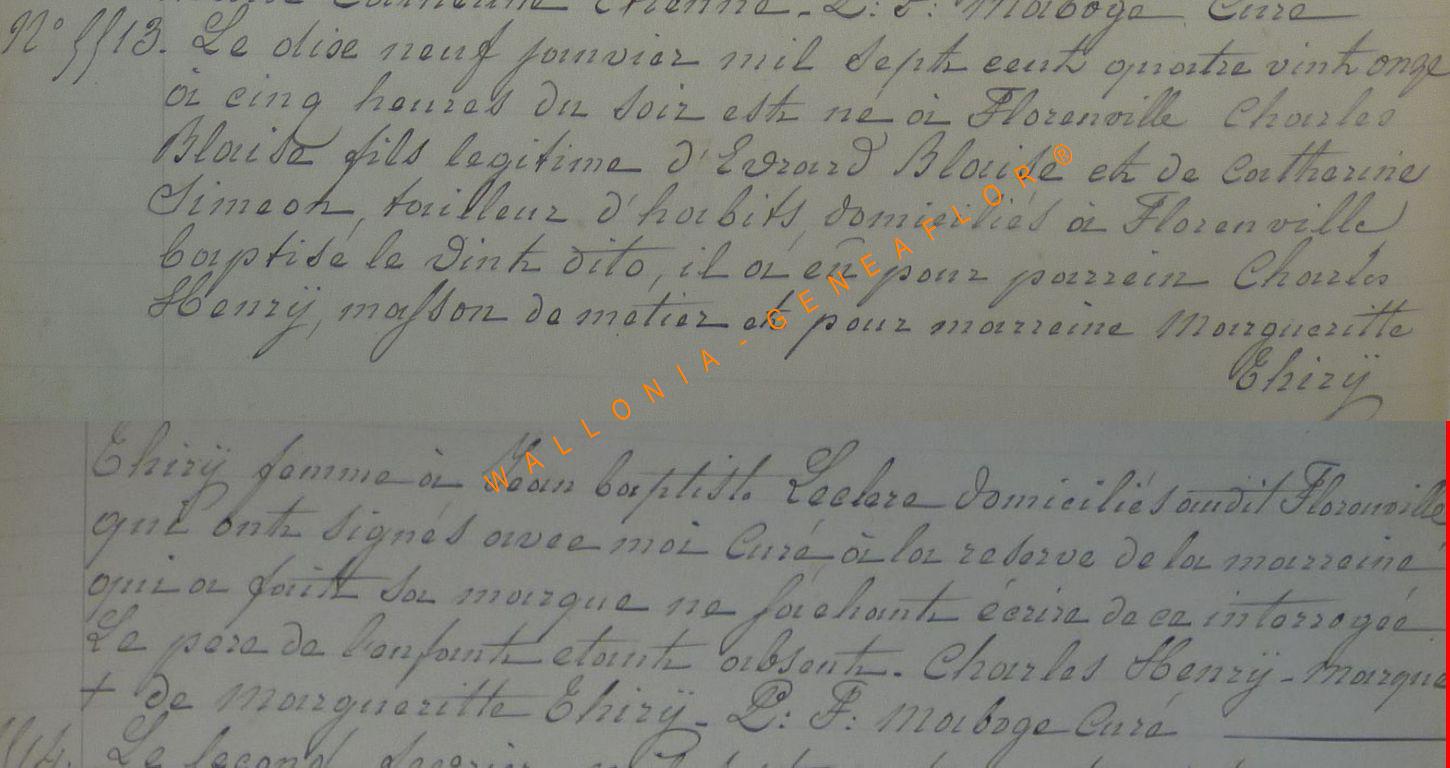 Catherine Etienne - P: F: Maboge Curé
N° 5513. Le dixe neuf janvier mil sept cent quatre vint onze
à cinq heures du soir est né à Florenville Charles
Blaise fils legitime d'Evrard Blaise et de Catherine
Simeon, tailleur d'habits, domiciliés à Florenville
baptisé le vint dito, il a eû pour parrein Charles
Henrÿ, masson de metier et pour marreine Margueritte
Thirÿ
Thirÿ femme à Jean baptiste Leclere domiciliés audit Florenville
qui ont signés avec moi Curé à la reserve de la marreine
qui a faitt sa marque ne sachant écrire de ce interrogée
Le pere de l'enfant etant absent. Charles Henrÿ - marque
+ de Margueritte Thirÿ - P: F: Maboge Curé
14. Le second fevrier mil sept
WALLONIA - GENEAFLOR®